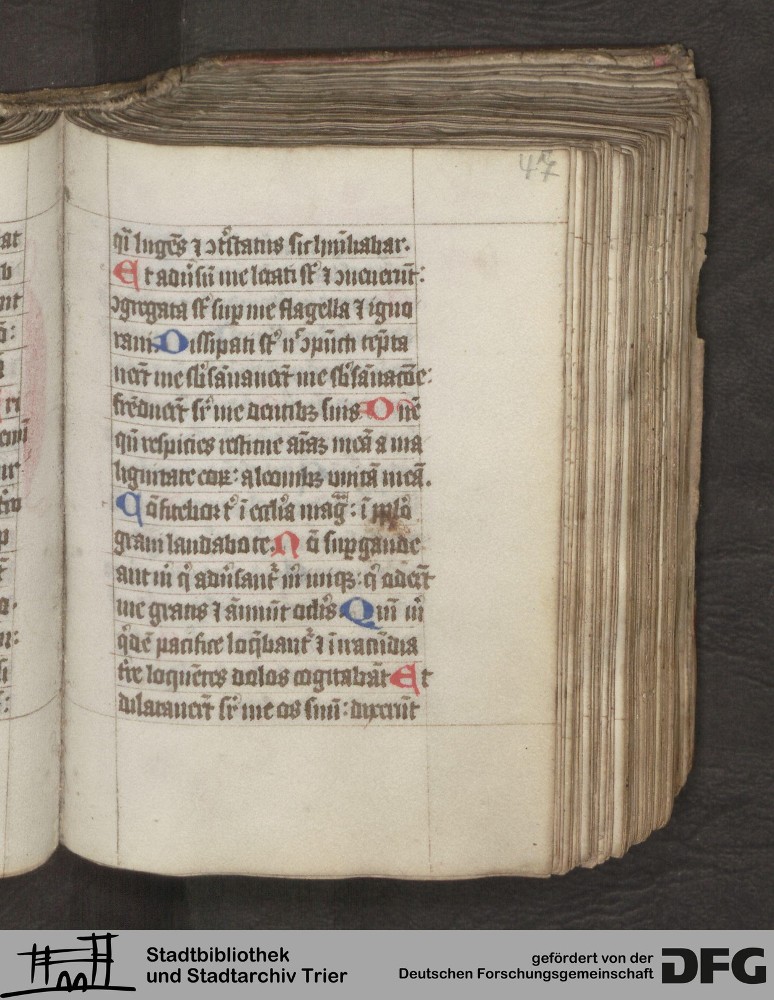 47
qi lugēs ⁊ ꝯtͥstatus sic humiliabar.
Et aduͥsū me letati sͭ ⁊ ꝯuenerūt:
ꝯgregata sͭ sup me flagella ⁊ igno
raui. Dissipati sͭ nͨ ꝯpūcti tēpta
uerͭt me sb̄sānauerͭt me sb̄sānacōe:
frēduerͭt sͬ me dentibꝫ suis Dn̄e
qn̄ respicies restitue aīaꝫ meā a ma
lignitate eoꝝ: a leonibꝫ unicā meā.
Cōfitebor tͥ ī ecclīa mag̃: ī pplō
graui laudabo te. Nō supgaude
ant m̄ q̄ aduͥsant̃ m̄ iniq̄: q̄ oderͭt
me gratis ⁊ ānuūt oclīs Qm̄ m̄
qͥdē pacifice loq̄bant̃ ⁊ ī iracūdia
tͬre loquētes dolos cogitabāt Et
dilatauerͭt sͬ me os suū: dixerūt
at
Stadtbibliothek
und Stadtarchiv Trier
gefördert von der
Deutschen Forschungsgemeinschaft
DFG